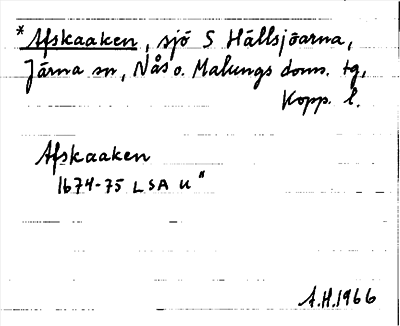 * Afskaaken, sjö S Hällsjöarna,
Järna sn, Nås o. Malungs doms. tg,
Kopp. l.
Afskaaken
1674-75 LSA U"
A.H.1966